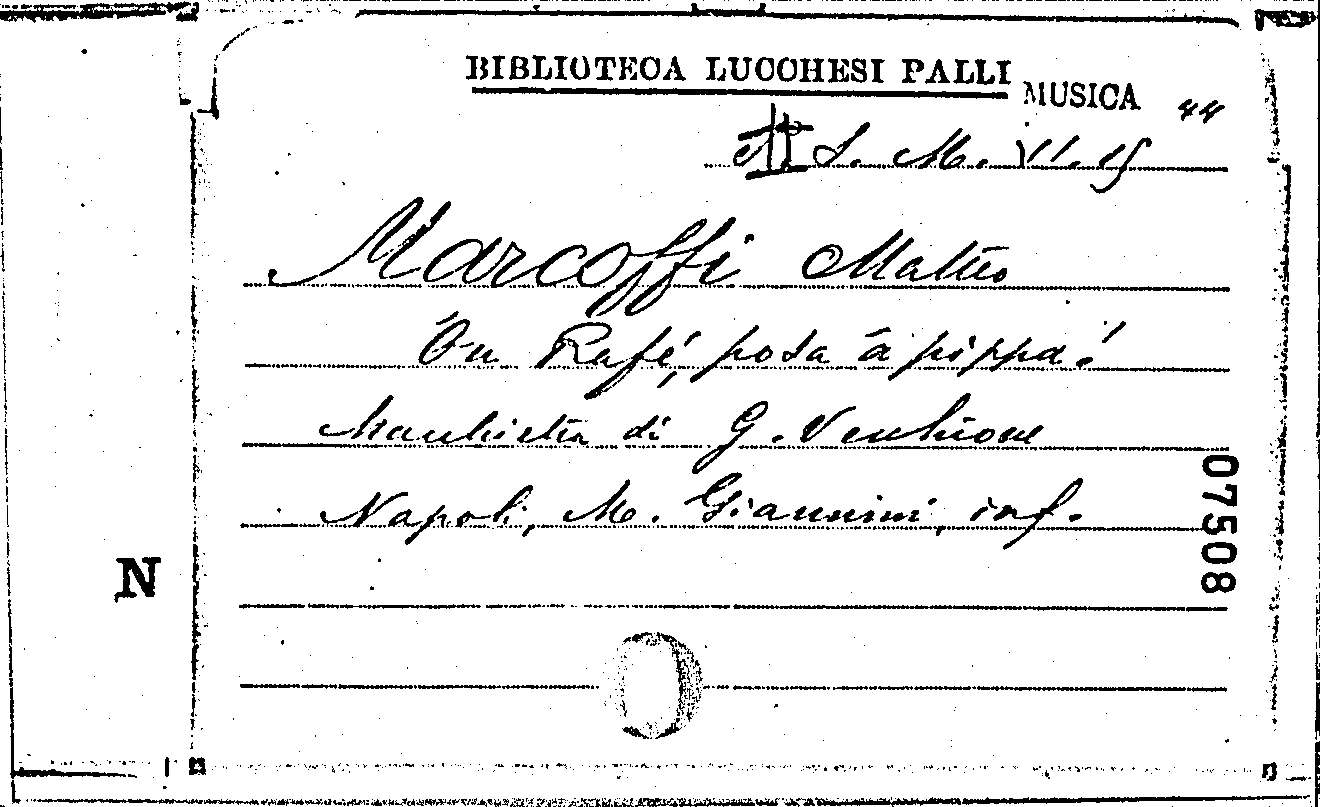 BIBLIOTECA LUCCHESI PALLI
MUSICA 44
II S. M. VI. 15
Marcoffi Matteo
On Rafé, posa â pippa!
Macchietta di G. Vecchione
Napoli, M. Giannini, inf.
07508
N